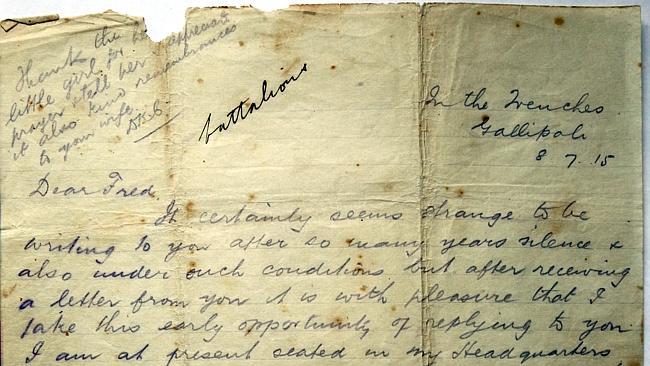 Thank the
little girl for her
prayer & tell her I appreciate
it also kind remembrances
to your wife.
battalions
In the Trenches
Gallipoli
8 7. 15
Dear Fred.
It certainly seems strange to be
writing to you after so many years silence &
also under such conditions but after receiving
a letter from you it is with pleasure that I
take this early opportunity of replying to you.
I am at present seated in my Headquarters